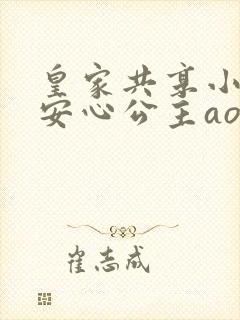 皇家共享小
安心公主ao
崔志成